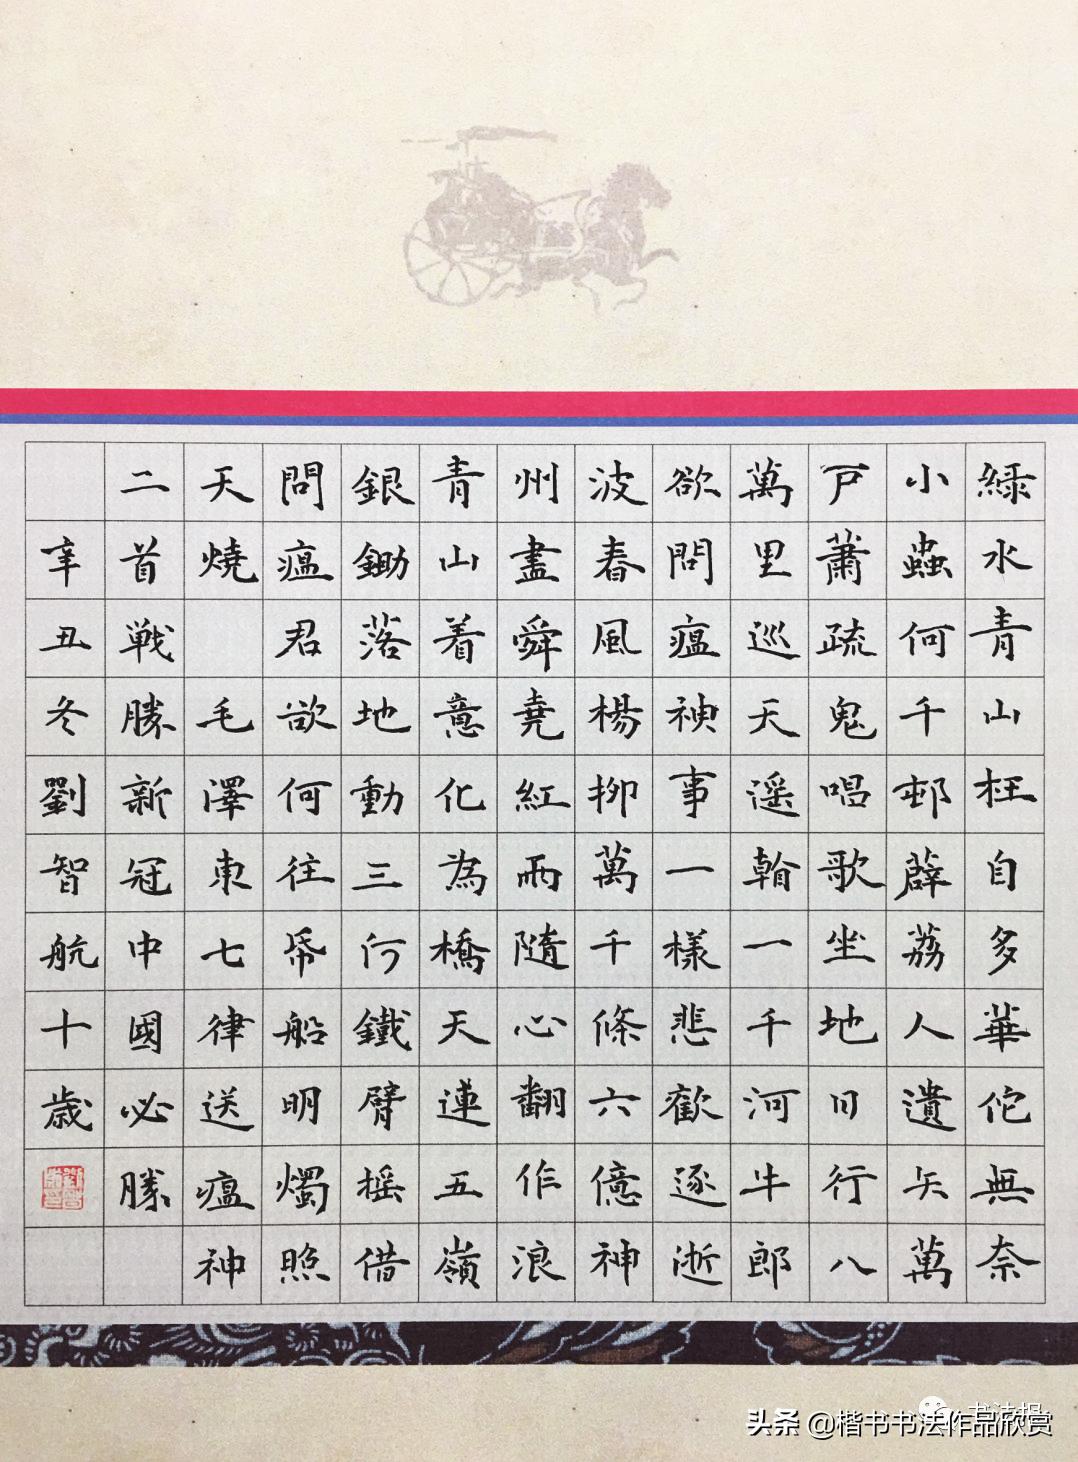 綠水青山枉自多華佗無奈
小蟲何千邨薜荔人遺矢萬
戶蕭疏鬼唱歌坐地日行八
萬里巡天遥翰一千河牛郎
欲問瘟神事一樣悲歡逐逝
波春風楊柳萬千條六億神
州盡舜堯紅雨隨心翻作浪
青山着意化為橋天連五嶺
銀鋤落地動三河鐵臂摇借
問瘟君欲何往帋船明燭照
天燒 毛澤東七律送瘟神
二首戦勝新冠中國必勝
辛丑冬劉智航十歳
头条 @楷书书法作品欣赏